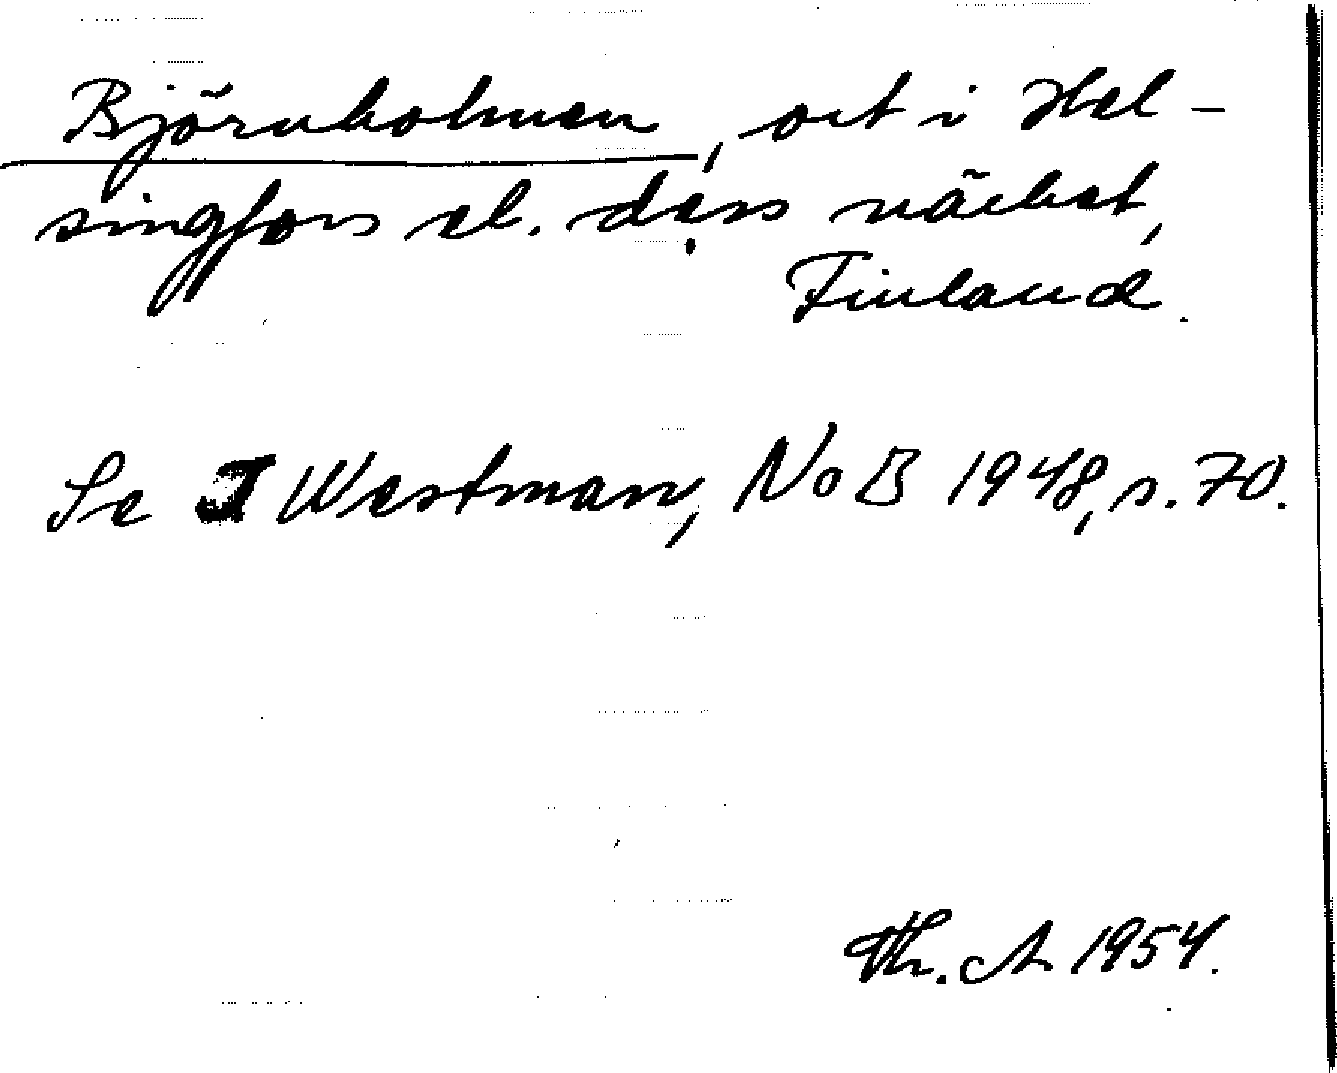 Björnholmen, ort i Hel-
singfors el. dess närhet,
Finland.
Se I Westman, NoB 1948, s. 70.
Th. A 1954.